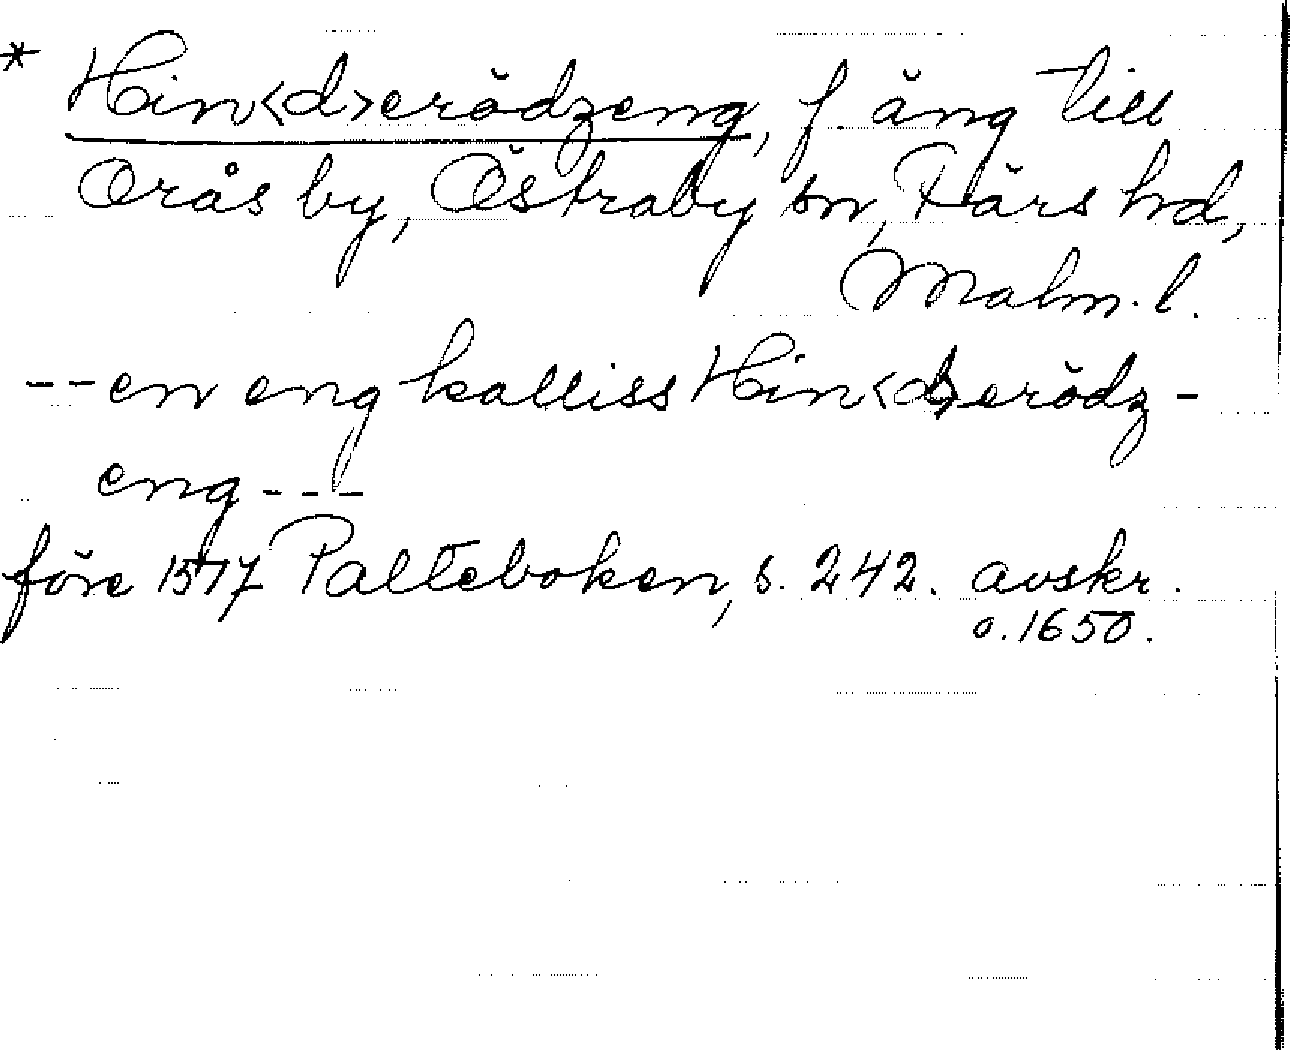 * Hin<d>erödzeng, f. äng till
Orås by, Östraby sn, Färs hd,
Malm. l.
--en eng kalliss Hin<d>erödz-
eng---
före 1577 Palteboken, s. 242. avskr.
o. 1650.